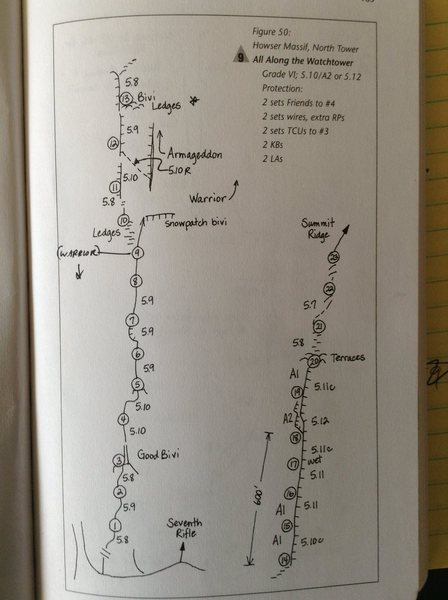 Figure 50:
Howser Massif, North Tower
9 All Along the Watchtower
Grade VI; 5.10/A2 or 5.12
Protection:
2 sets Friends to #4
2 sets wires, extra RPs
2 sets TCUs to #3
2 KBs
2 LAs
5.8
13 Bivi
Ledges
5.9
12
Armageddon
5.10R
5.10
11
5.8
Warrior
10
snowpatch bivi
Ledges
(WARRIOR)
9
8
5.9
7
5.9
6
5.9
5
5.10
4
5.10
3
Good Bivi
5.8
2
5.9
1
5.8
Seventh
Rifle
Summit
Ridge
23
22
5.7
21
5.8
20
Terraces
A1
5.11c
19
A2
5.12
18
5.11c
17
wet
5.11
600'
16
A1
5.11
15
A1
5.10c
14